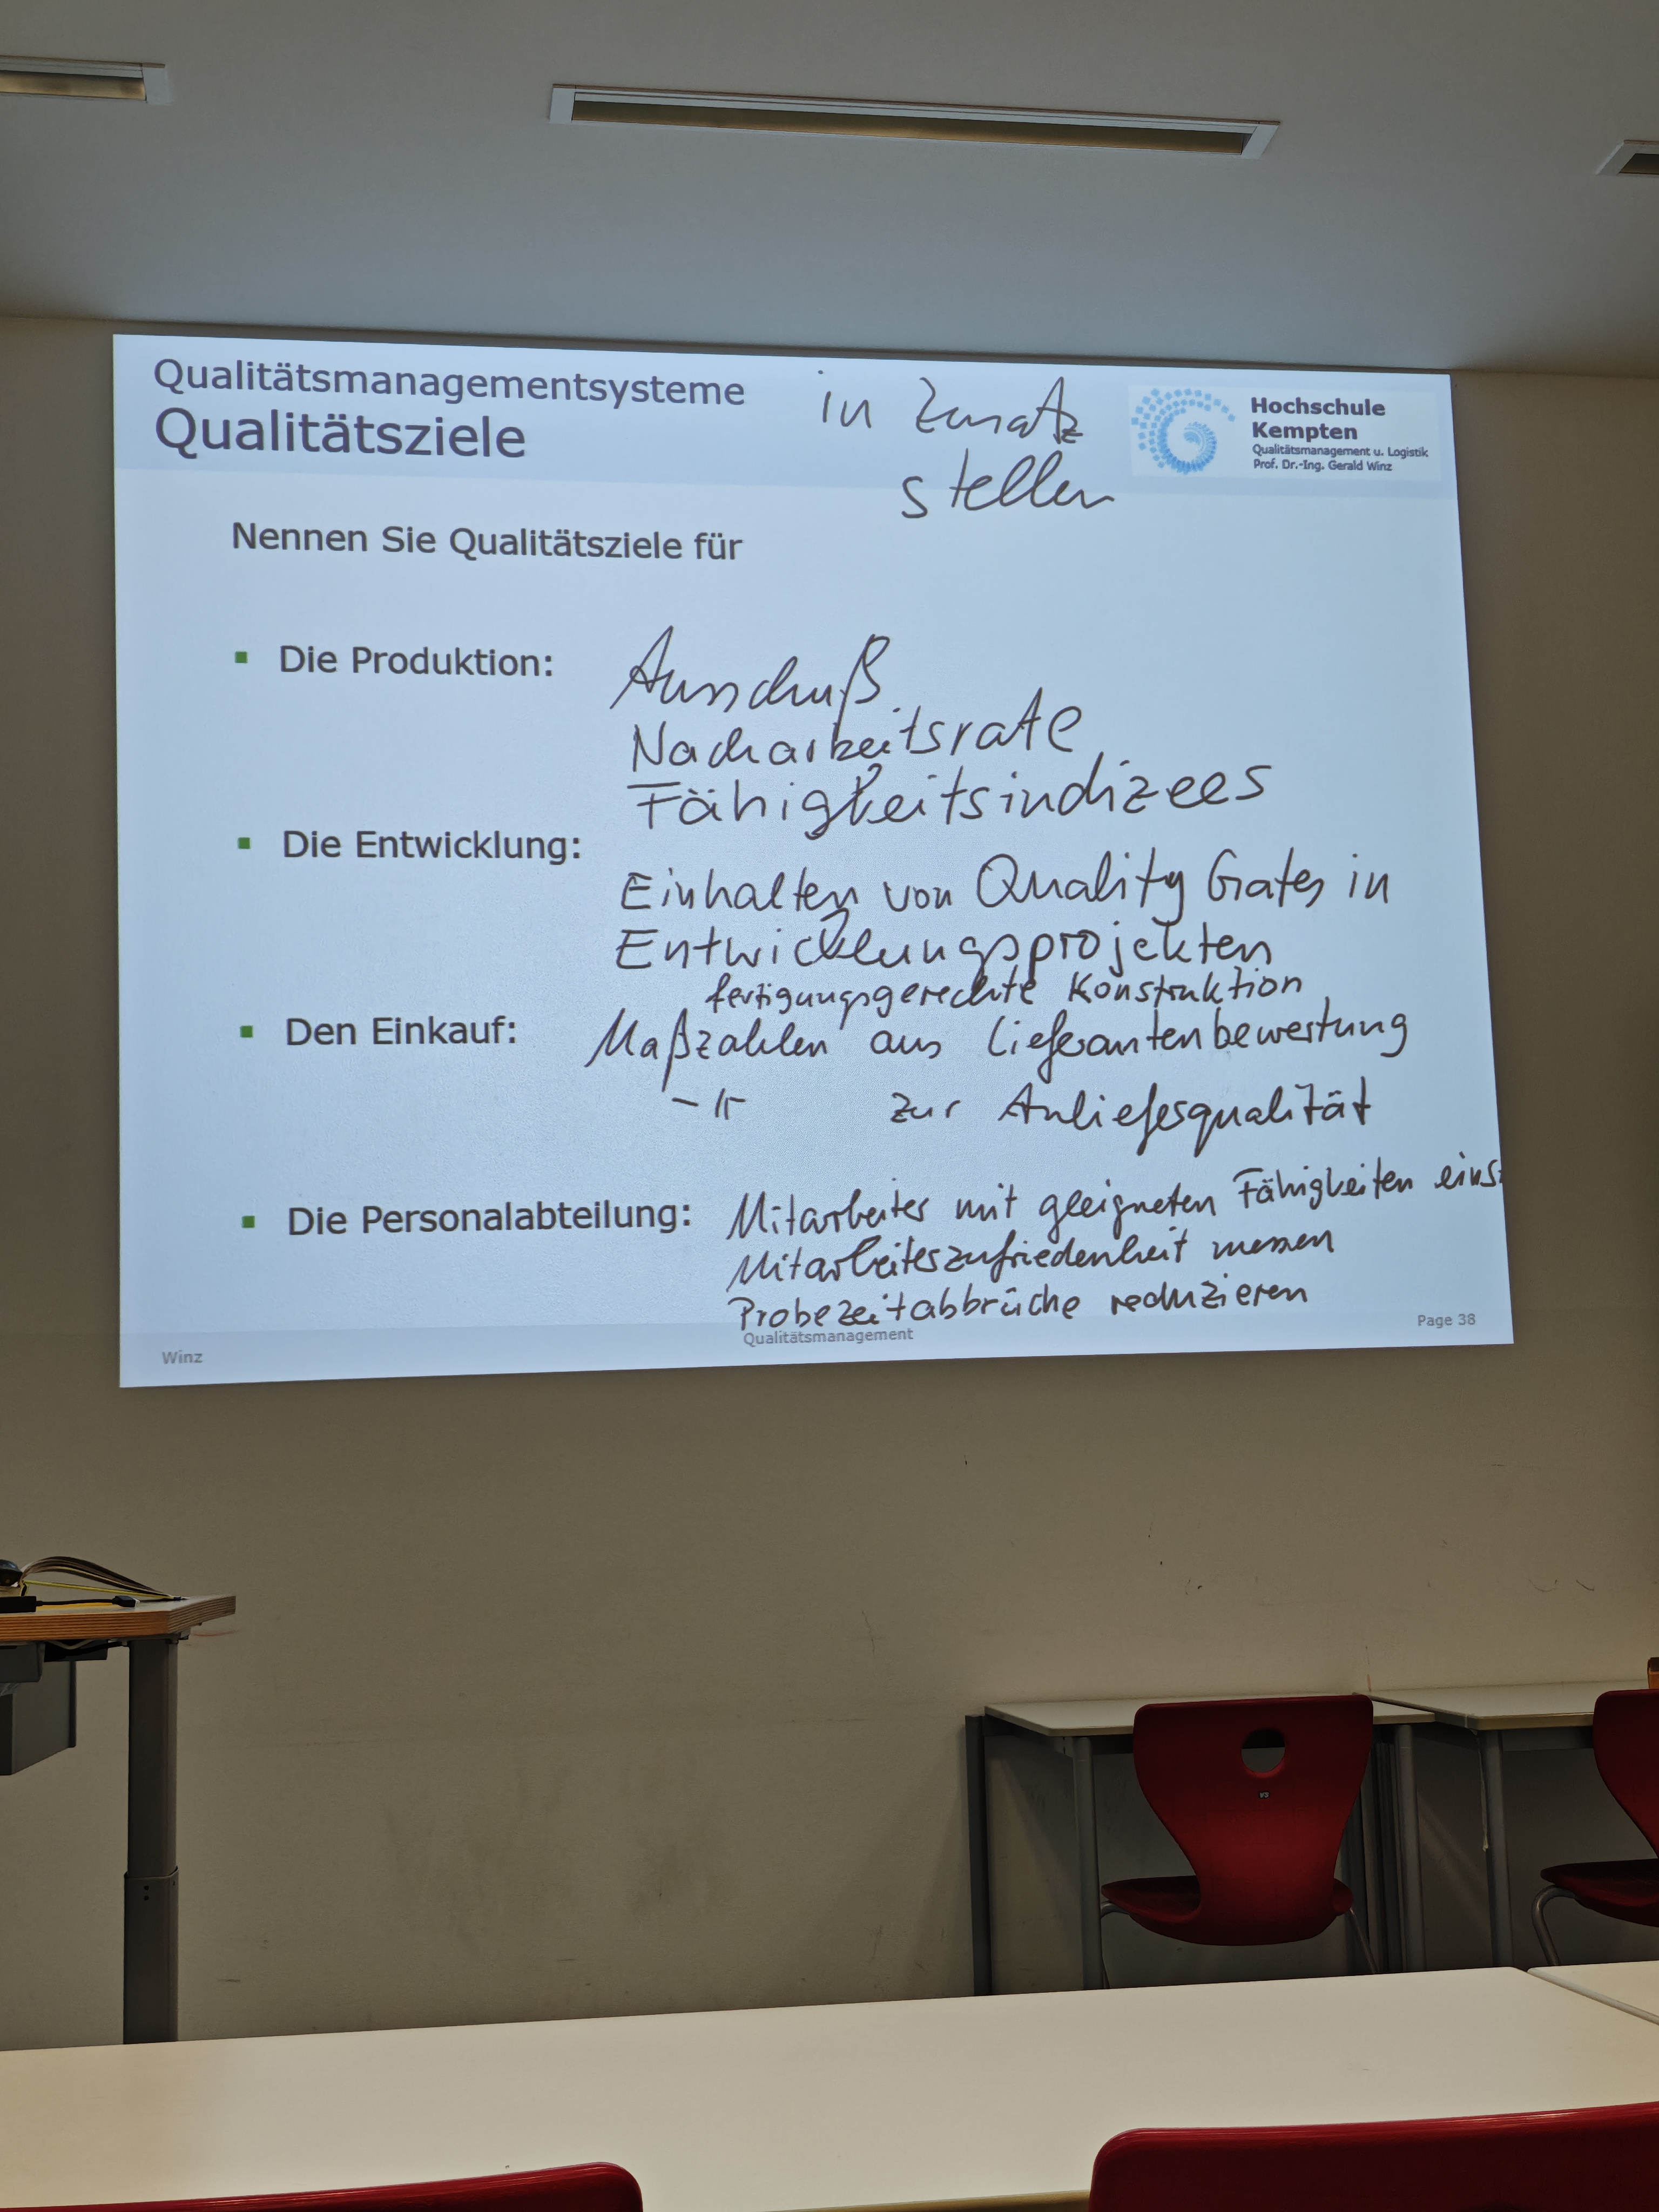 Qualitätsmanagementsysteme
Qualitätsziele
in Zusatz
stellen
Hochschule
Kempten
Qualitätsmanagement u. Logistik
Prof. Dr.-Ing. Gerald Winz
Nennen Sie Qualitätsziele für
Die Produktion:
Ausschuß
Nacharbeitsrate
Fähigkeitsindizees
Die Entwicklung:
Einhalten von Quality Gates in
Entwicklungsprojekten
fertigungsgerechte Konstruktion
Den Einkauf:
Maßzahlen aus Lieferantenbewertung
-"- zur Anlieferqualität
Die Personalabteilung:
Mitarbeiter mit geeigneten Fähigkeiten eins
Mitarbeiterzufriedenheit messen
Probezeitabbrüche reduzieren
Winz
Qualitätsmanagement
Page 38